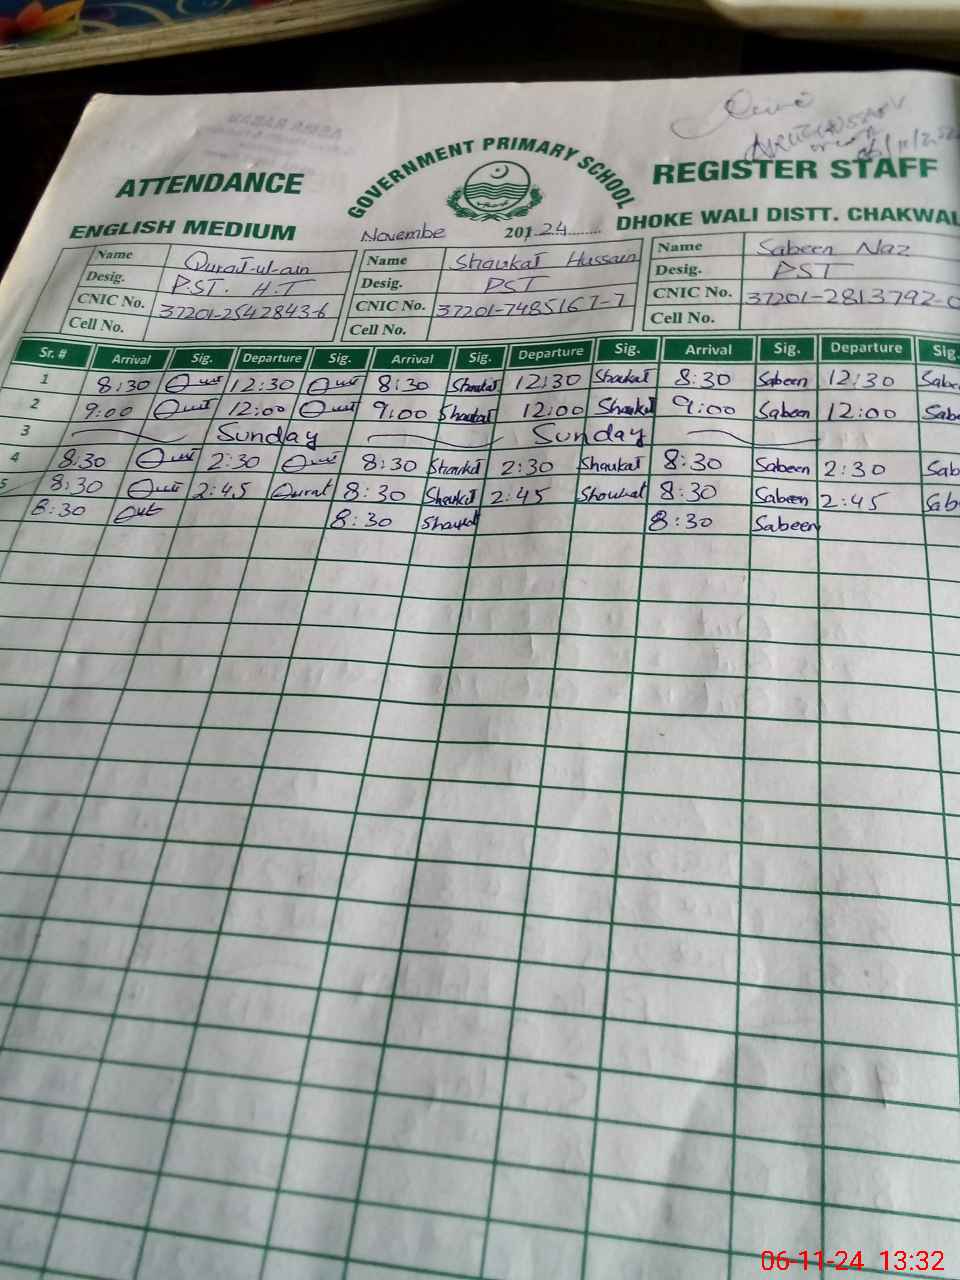 ATTENDANCE
GOVERNMENT PRIMARY SCHOOL
REGISTER STAFF
ENGLISH MEDIUM
Novembe 201 24
DHOKE WALI DISTT. CHAKWAL
Name Qurat-ul-ain Name Shaukat Hussain Name Sabeen Naz
Desig. P.ST. H.T Desig. PST Desig. PST
CNIC No. 37201-2542843-6 CNIC No. 37201-7485167-7 CNIC No. 37201-2813792-0
Cell No. Cell No. Cell No.
Sr. # Arrival Sig. Departure Sig. Arrival Sig. Departure Sig. Arrival Sig. Departure Sig.
1 8:30 12:30 8:30 Shaukat 12:30 Shaukat 8:30 Sabeen 12:30 Sabe
2 9:00 12:00 9:00 Shaukat 12:00 Shaukat 9:00 Sabeen 12:00 Sab
3 Sunday Sunday
4 8:30 2:30 8:30 Shaukat 2:30 Shaukat 8:30 Sabeen 2:30 Sab
5 8:30 2:45 Qurat 8:30 Shaukat 2:45 Shoukat 8:30 Sabeen 2:45 Sab
8:30 8:30 Shaukat 8:30 Sabeen
06-11-24 13:32